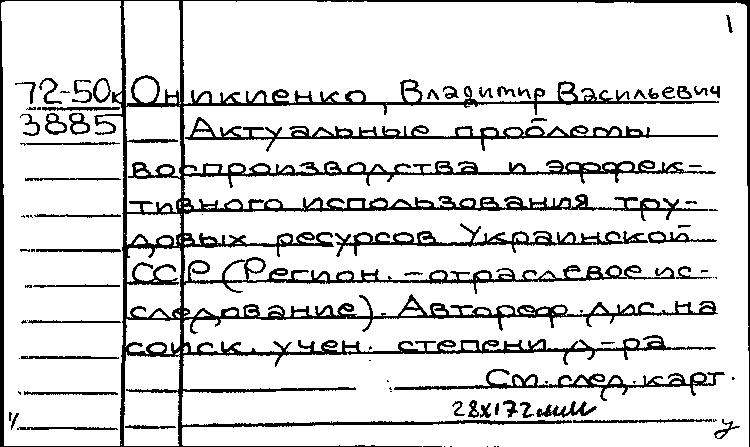 1
72-50к Оникиенко, Владимир Васильевич
3885 Актуальные проблемы
воспроизводства и эффек-
тивного использования тру-
довых ресурсов Украинской
ССР (Регион. - отраслевое ис-
следование). Автореф. дис. на
соиск. учен. степени д-ра
См. след. карт.
28х172 мм
ч у